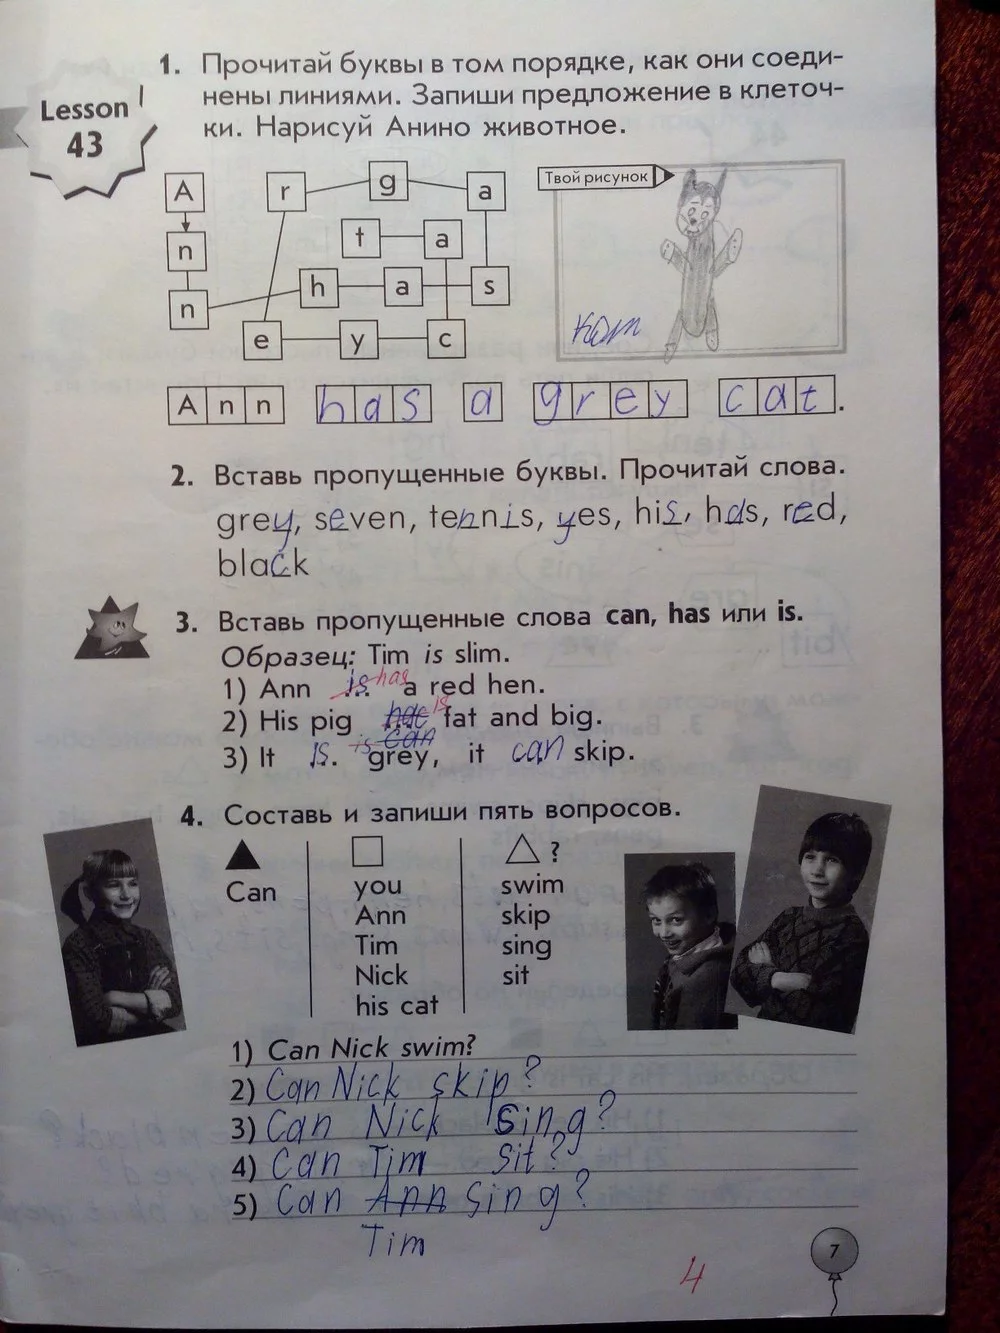 Lesson
43
1. Прочитай буквы в том порядке, как они соеди-
нены линиями. Запиши предложение в клеточ-
ки. Нарисуй Анино животное.
A r g a
Твой рисунок
n t a
n h a s
e y c
кот
Ann has a grey cat.
2. Вставь пропущенные буквы. Прочитай слова.
grey, seven, tennis, yes, his, has, red,
black
3. Вставь пропущенные слова can, has или is.
Образец: Tim is slim.
1) Ann is has a red hen.
2) His pig is fat and big.
is can
3) It is grey, it can skip.
4. Составь и запиши пять вопросов.
?
Can you swim
Ann skip
Tim sing
Nick sit
his cat
1) Can Nick swim?
2) Can Nick skip?
3) Can Nick sing?
4) Can Tim sit?
5) Can Ann sing?
Tim
7
4